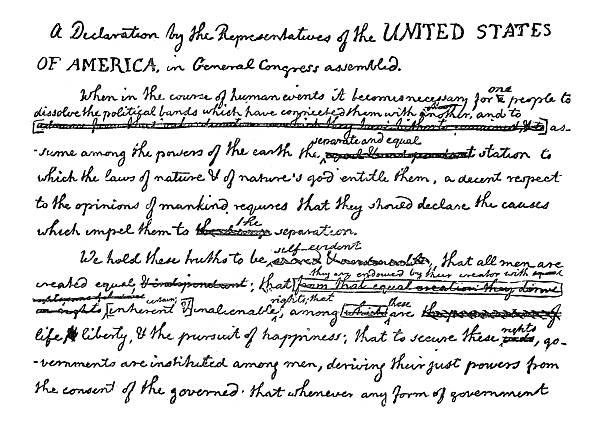 A Declaration by the Representatives of the UNITED STATES
OF AMERICA, in General Congress assembled.
When in the course of human events it becomes necessary for a one people to
dissolve the political bands which have connected them with another, and to
as-
separate and equal
-sume among the powers of the earth the equal & independent station to
which the laws of nature & of nature's god entitle them, a decent respect
to the opinions of mankind requires that they should declare the causes
the
which impel them to the separation.
self-evident
We hold these truths to be sacred & undeniable, that all men are
they are endowed by their creator with equal
created equal & independent; that from that equal creation they derive
rights, that these
inherent & inalienable, among which are
rights
life, & liberty, & the pursuit of happiness; that to secure these ends, go-
-vernments are instituted among men, deriving their just powers from
the consent of the governed. that whenever any form of government